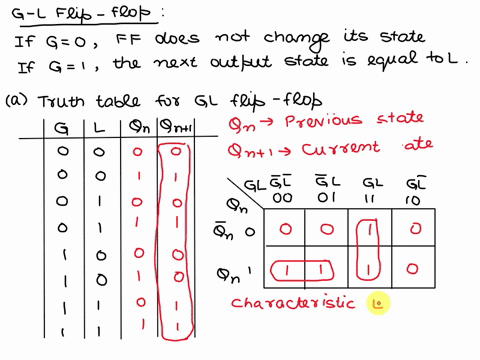 G-L Flip-flop:
If G=0, FF does not change its state
If G=1, the next output state is equal to L.
(a) Truth table for GL flip-flop
G L Qn Qn+1
0 0 0 0
0 0 1 1
0 1 0 0
0 1 1 1
1 0 0 0
1 0 1 0
1 1 0 1
1 1 1 1
Qn → Previous state
Qn+1 → Current ate
GL G̅L̅ G̅L GL GL̅
Qn 00 01 11 10
Q̅n 0 0 0 1 0
Qn 1 1 1 1 0
Characteristic